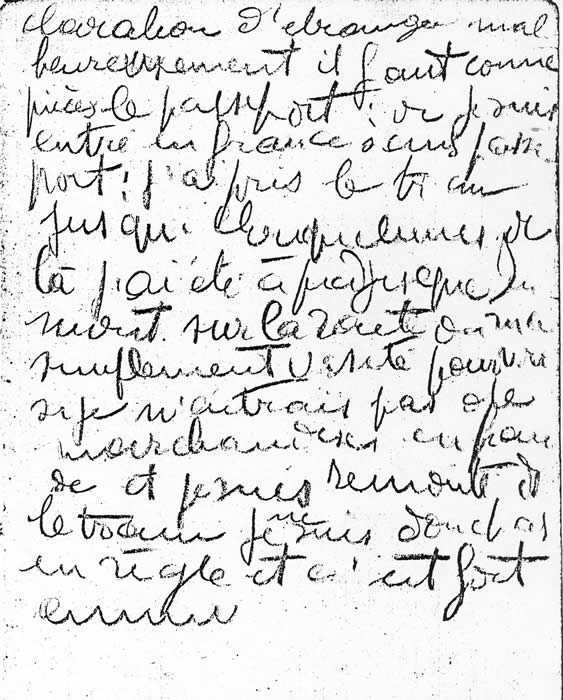 claration d'étranger mal
heureusement il faut comme
pièces le passport : or je suis
entré en france sans passe
port ; j'ai pris le train
jusqu'
là j'ai été à pied jusque
sur la route on m'a
simplement visité pour voir
si je n'entrais pas de
marchandises en frau
de et je suis remonté ds
le train je ne suis donc pas
en règle et c'est fort
ennu